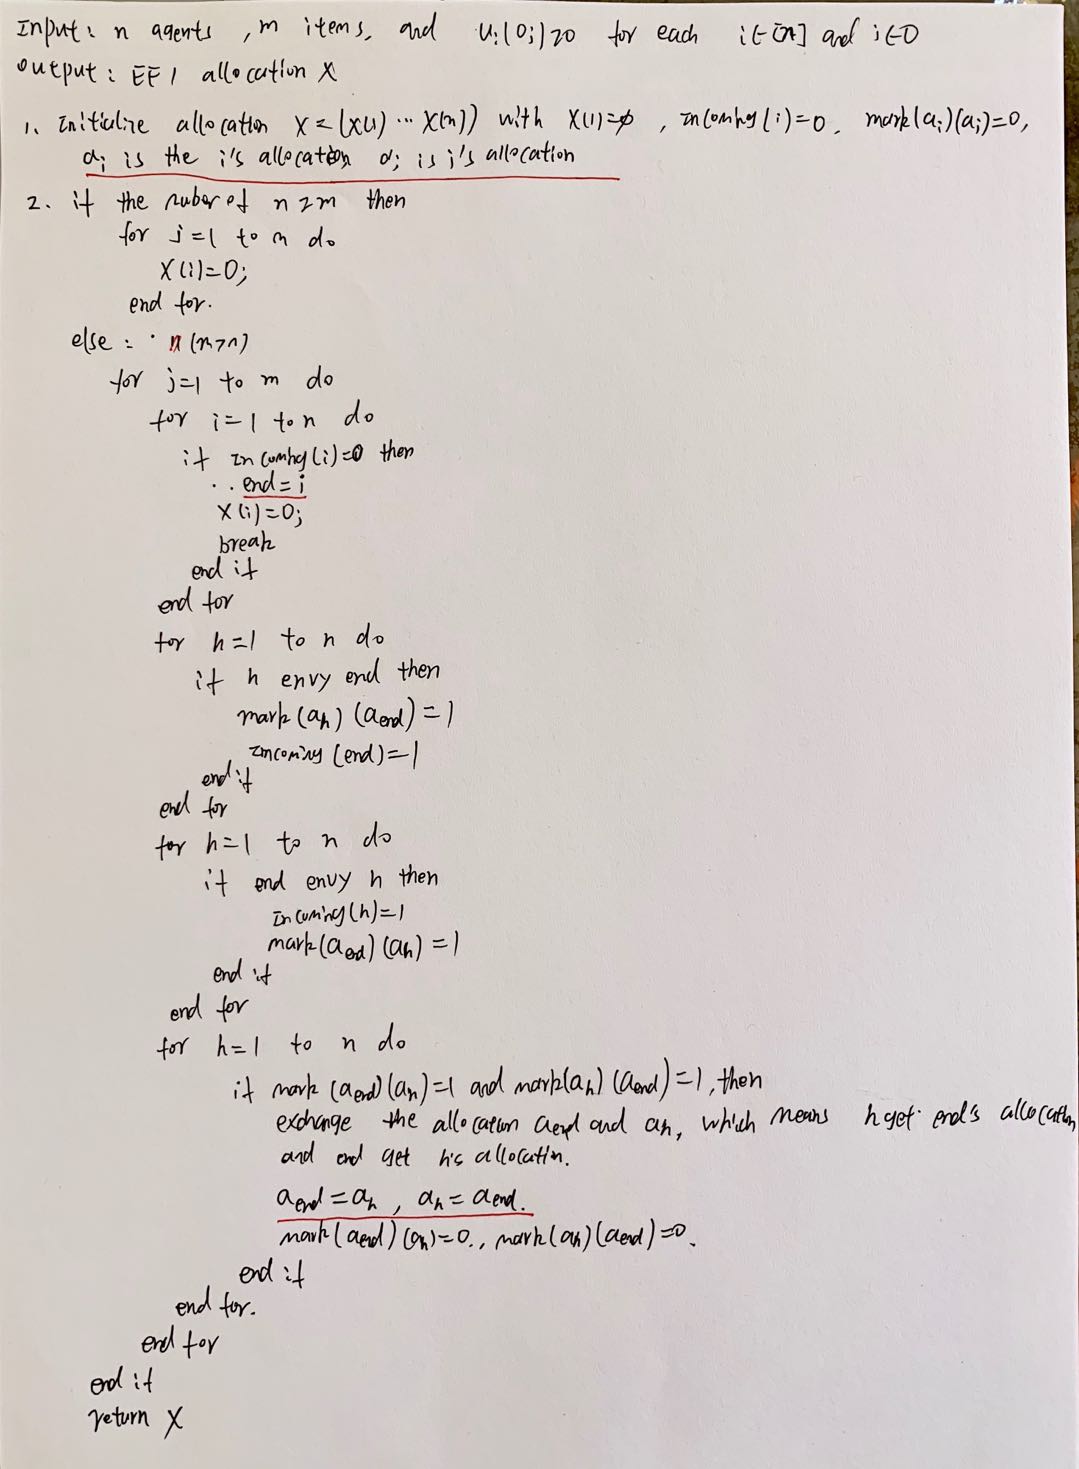 Input: n agents , m items, and Ui(Oj)≥0 for each i∈[n] and j∈O
output: EF1 allocation X
1. Initialize allocation X = (X(1) ... X(n)) with X(1)=φ , Incoming(i)=0. mark(ai)(aj)=0,
ai is the i's allocation aj is j's allocation
2. if the nuber of n≥m then
for j=1 to m do
X(i)=Oj
end for.
else : n (m>n)
for j=1 to m do
for i=1 to n do
if Incoming(i)=0 then
end=i
X(i)=Oj
break
end if
end for
for h=1 to n do
if h envy end then
mark(ah)(aend)=1
Incoming(end)=1
end if
end for
for h=1 to n do
if end envy h then
Incoming(h)=1
mark(aend)(ah)=1
end if
end for
for h=1 to n do
if mark(aend)(ah)=1 and mark(ah)(aend)=1, then
exchange the allocation aend and ah, which means h get end's allocation
and end get h's allocation.
aend=ah , ah=aend.
mark(aend)(ah)=0., mark(ah)(aend)=0.
end if
end for.
end for
end if
return X